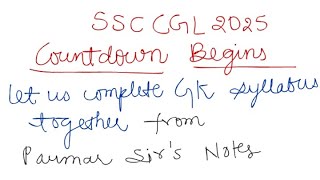 SSC CGL 2025
Countdown Begins
Let us complete GK syllabus
together from
Parmar Sir's Notes